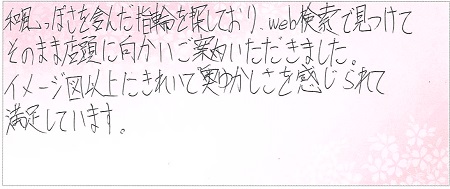 和風っぽさを含んだ指輪を探しており、web検索で見つけて
そのまま店頭に向かいご案内いただきました。
イメージ図以上にきれいで奥ゆかしさを感じられて
満足しています。